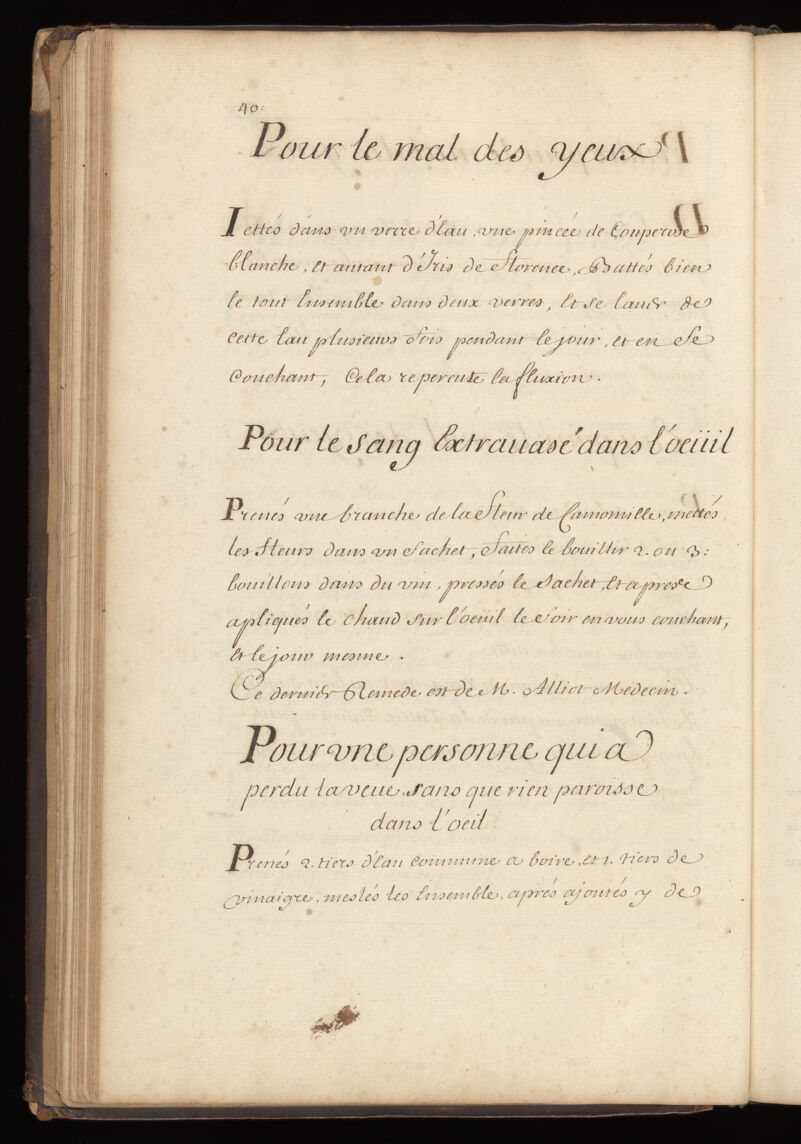 40:
Pour le mal des yeux
Iettés dans vn verre d'Eau, vne pincée de Couperose
blanche, Et autant d'Iris de Florence, Battés bien
le tout Ensemble dans deux verres, Et se lauer de
cette Eau plusieurs Fois pendant le jour, et en Se
Couchant, Cela repercute la fluxion.
Pour le Sang Extrauasé dans l'oeüil
Prenés vne branche de la Fleur de Camomille, mettés
les Fleurs dans vn Sachet, Faites le bouillir 2. ou 3:
bouillons dans du vin, pressés le Sachet, Et apres
apliqués le chaud sur l'oeüil le Soir en vous couchant,
Et le jour mesme.
Ce dernier Remede est de M. Alliot Medecin.
Pour vne personne qui a
perdu la veue, sans que rien paroisse
dans l'oeil
Prenés 2. tiers d'Eau Commune a boire, et 1. tiers de
vinaigre, meslés les Ensemble, aprés ajoutés y de